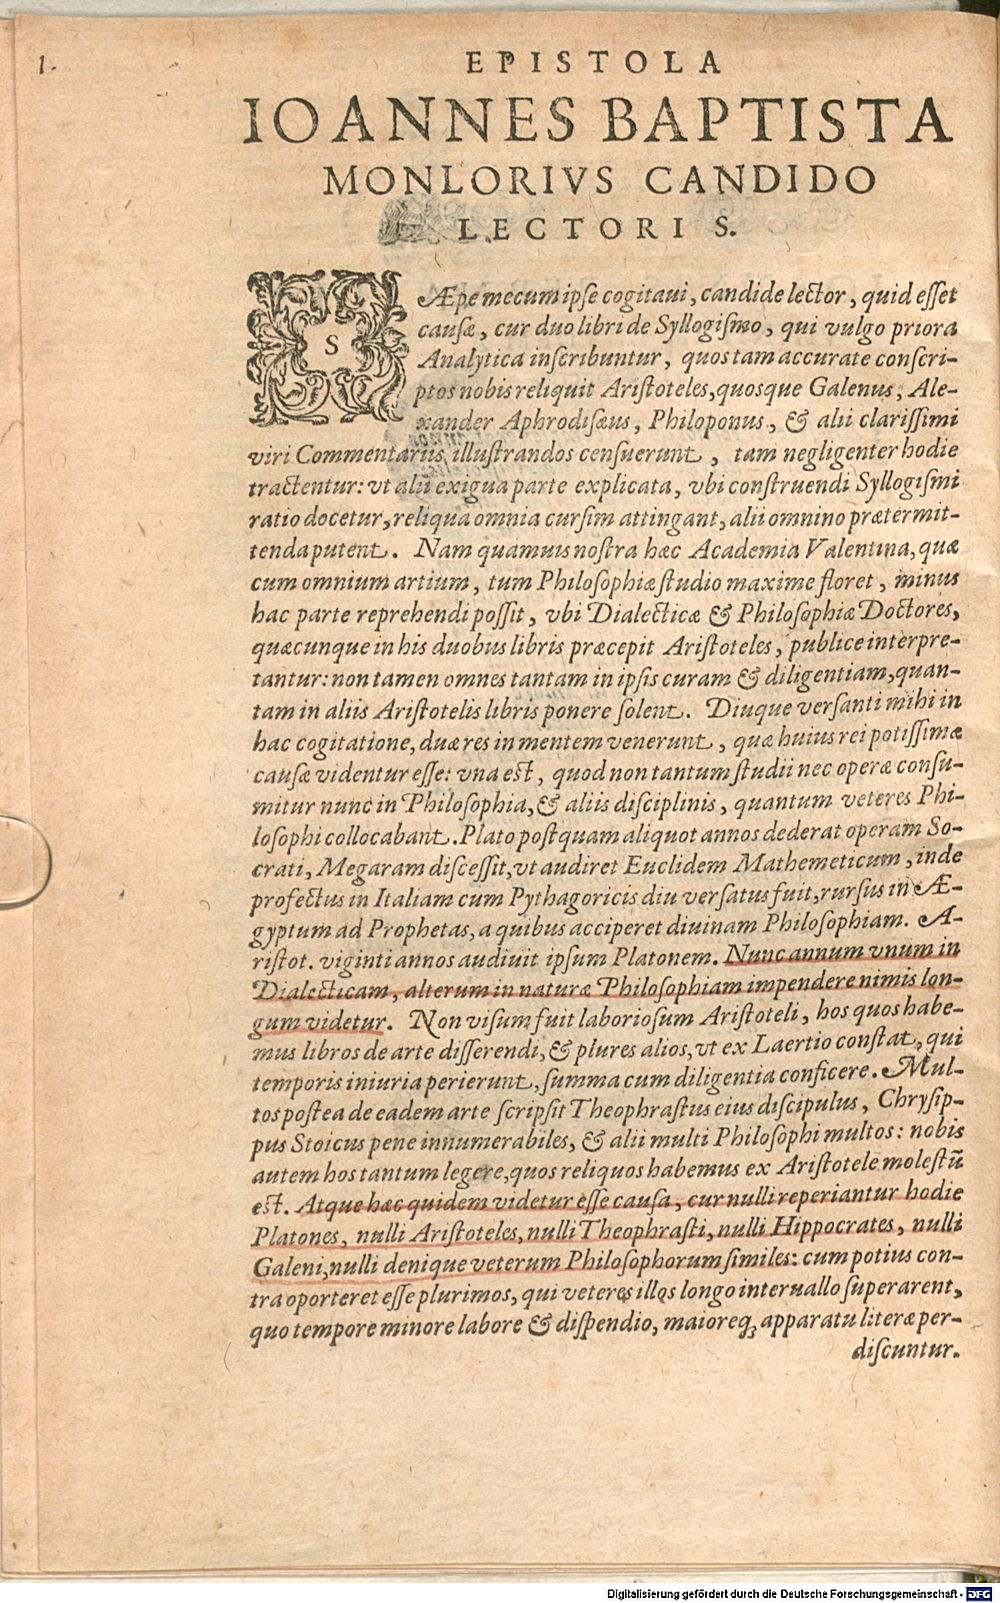 1.
EPISTOLA
IOANNES BAPTISTA
MONLORIVS CANDIDO
LECTORI S.
SÆpe mecum ipse cogitaui, candide lector, quid esset
causæ, cur duo libri de Syllogismo, qui vulgo priora
Analytica inscribuntur, quos tam accurate conscri-
ptos nobis reliquit Aristoteles, quosque Galenus, Ale-
xander Aphrodisæus, Philoponus, & alii clarissimi
viri Commentariis illustrandos censuerunt, tam negligenter hodie
tractentur: vt alii exigua parte explicata, vbi construendi Syllogismi
ratio docetur, reliqua omnia cursim attingant, alii omnino prætermit-
tenda putent. Nam quamuis nostra hæc Academia Valentina, quæ
cum omnium artium, tum Philosophiæ studio maxime floret, minus
hac parte reprehendi possit, vbi Dialecticæ & Philosophiæ Doctores,
quæcunque in his duobus libris præcepit Aristoteles, publice interpre-
tantur: non tamen omnes tantam in ipsis curam & diligentiam, quan-
tam in aliis Aristotelis libris ponere solent. Diuque versanti mihi in
hac cogitatione, duæ res in mentem venerunt, quæ huius rei potissimæ
causæ videntur esse: vna est, quod non tantum studii nec operæ consu-
mitur nunc in Philosophia, & aliis disciplinis, quantum veteres Phi-
losophi collocabant. Plato postquam aliquot annos dederat operam So-
crati, Megaram discessit, vt audiret Euclidem Mathemeticum, inde
profectus in Italiam cum Pythagoricis diu versatus fuit, rursus in Æ-
gyptum ad Prophetas, a quibus acciperet diuinam Philosophiam. A-
ristot. viginti annos audiuit ipsum Platonem. Nunc annum vnum in
Dialecticam, alterum in naturæ Philosophiam impendere nimis lon-
gum videtur. Non visum fuit laboriosum Aristoteli, hos quos habe-
mus libros de arte disserendi, & plures alios, vt ex Laertio constat, qui
temporis iniuria perierunt, summa cum diligentia conficere. Mul-
tos postea de eadem arte scripsit Theophrastus eius discipulus, Chrysip-
pus Stoicus pene innumerabiles, & alii multi Philosophi multos: nobis
autem hos tantum legere, quos reliquos habemus ex Aristotele molestū
est. Atque hæc quidem videtur esse causa, cur nulli reperiantur hodie
Platones, nulli Aristoteles, nulli Theophrasti, nulli Hippocrates, nulli
Galeni, nulli denique veterum Philosophorum similes: cum potius con-
tra oporteret esse plurimos, qui veteres illos longo interuallo superarent,
quo tempore minore labore & dispendio, maioreq; apparatu literæ per-
discuntur.
Digitalisierung gefördert durch die Deutsche Forschungsgemeinschaft - DFG